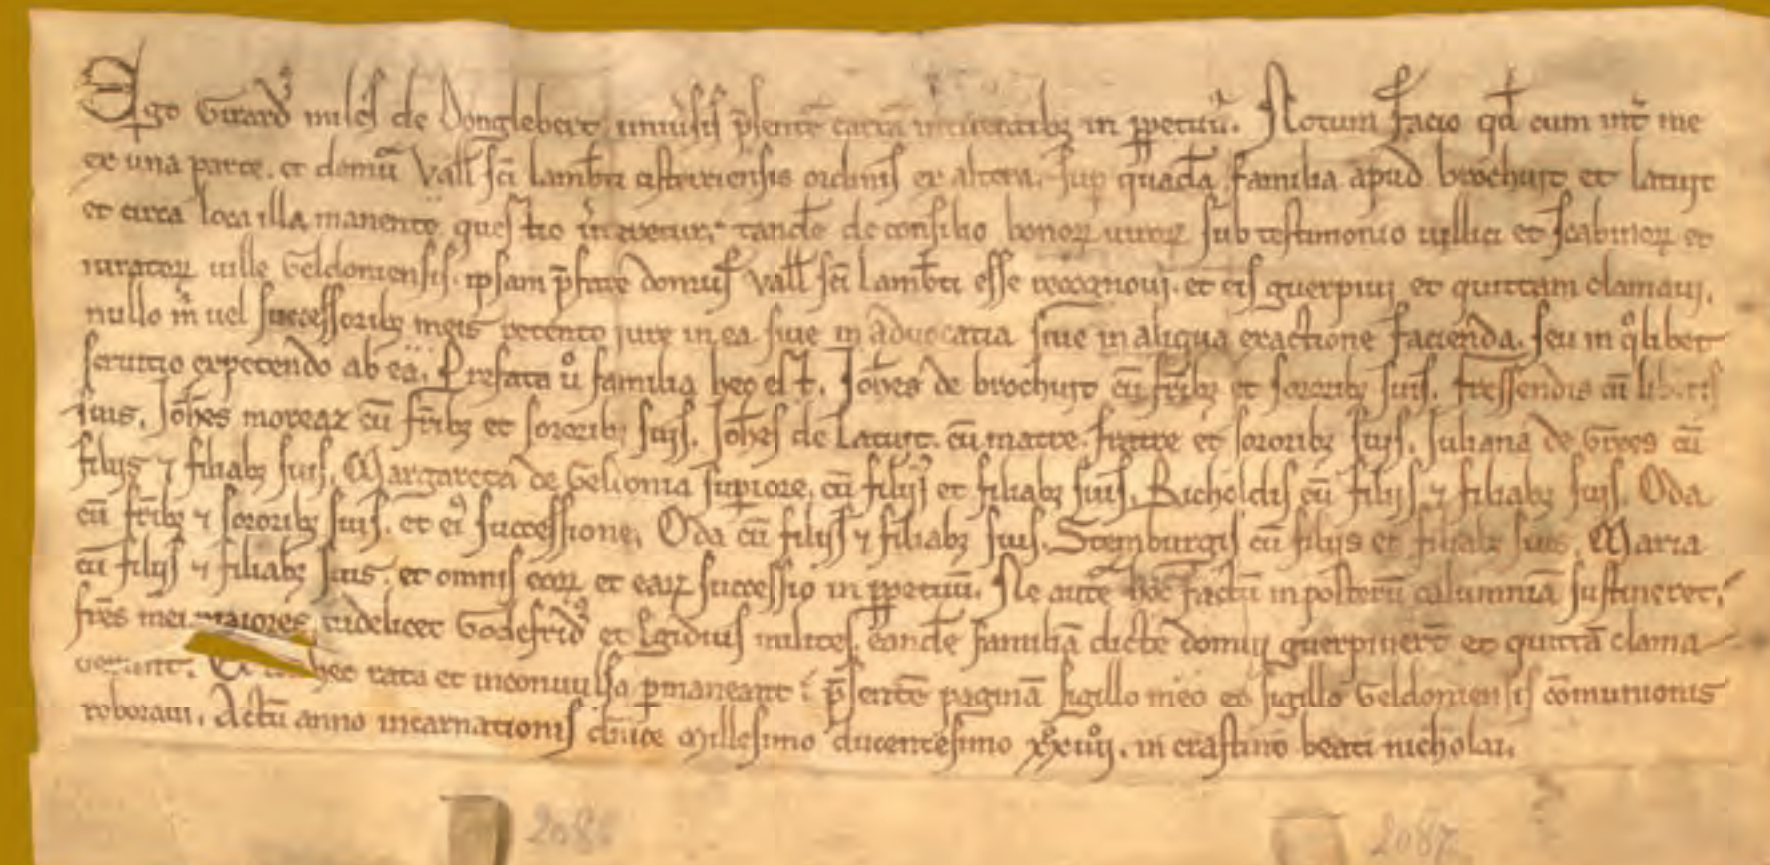 Ego Girard᷒ miles de Donglebert univ̾sis p̄sentē cartā intuentibꝫ in ꝑpetuū. Notum facio qđ cum int̾ me
ex una parte. et domū Vall̄ sc̄i Lamb̄ti cysterciensis ordinis ex altera. sup quadā familia apud brochut et latuyt
et circa loca illa manente questio v̾teretur. tandē de consilio bonoꝝ viroꝝ sub testimonio villici et scabinoꝝ et
iuratoꝝ ville Geldoniensis. ipsam p̄fate domus Vall̄ sc̄i Lamb̄ti esse recognovi. et eis guerpivi et quittam clamavi.
nullo m̊ vel successoribꝫ meis retento jure in ea sive in advocatia sive in aliqua exactione facienda. seu in qͦlibet
servitio expetendo ab ea. Prefata ů familia hec est. Joh̄es de brochut cū fr̄ibꝫ et sororibꝫ suis. fressendis cū liberis
suis. Joh̄es moreaz cū fr̄ibꝫ et sororibꝫ suis. Joh̄es de Latuyt. cū matre. fratre et sororibꝫ suis. Juliana de Grees cū
filijs ⁊ filiabꝫ suis. Margareta de Gelionia supiore. cū filijs et filiabꝫ suis. Richoldis cū filijs ⁊ filiabꝫ suis. Oda
cū fr̄ibꝫ ⁊ sororibꝫ suis. et ei᷒ successione. Oda cū filijs ⁊ filiabꝫ suis. Steinburgis cū filijs et filiabꝫ suis. Maria
cū filijs ⁊ filiabꝫ suis. et omnis eoꝝ et eaꝝ successio in ꝑpetuū. Ne autē hoc factū in posterū calumniā sustineret.
fr̄es mei maiores, videlicet Godefrid᷒ et Egidius milites. eandē familiā dicte domui guerpiverūt et quittā clama
verunt. hec rata et inconvulsa ꝑmaneant p̄sentē paginā sigillo meo et sigillo Geldoniensis cōmunionis
roboravi. Actū anno incarnationis dn̄ice Millesimo ducentesimo xxiiij. in crastino beati nicholai.
2087